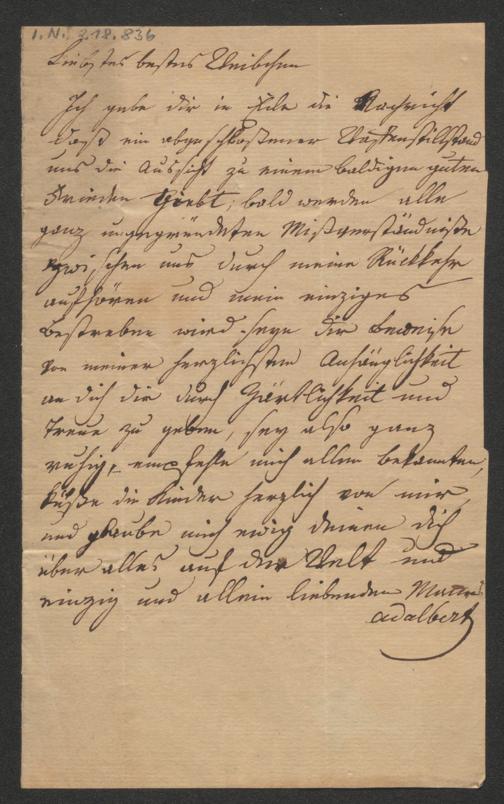 I.N. 218.836
Liebstes bestes Weibchen
Ich gebe dir in Eile die Nachricht
daß ein abgeschloßener Waffenstillstand
uns die Aussicht zu einem baldigen guten
Frieden giebt; bald werden alle
ganz ungegründeten Mißverständniße
zwischen uns durch meine Rückkehr
aufhören und mein einziges
Bestreben wird seyn dir Beweise
von meiner herzlichsten Anhänglichkeit
an dich die durch Zärtlichkeit und
Treue zu geben, sey also ganz
ruhig, empfehle mich allen bekannten,
küße die Kinder herzlich von mir
und glaube mich ewig deinen dich
über alles auf der Welt und
einzig und allein liebenden Mann
Adalbert